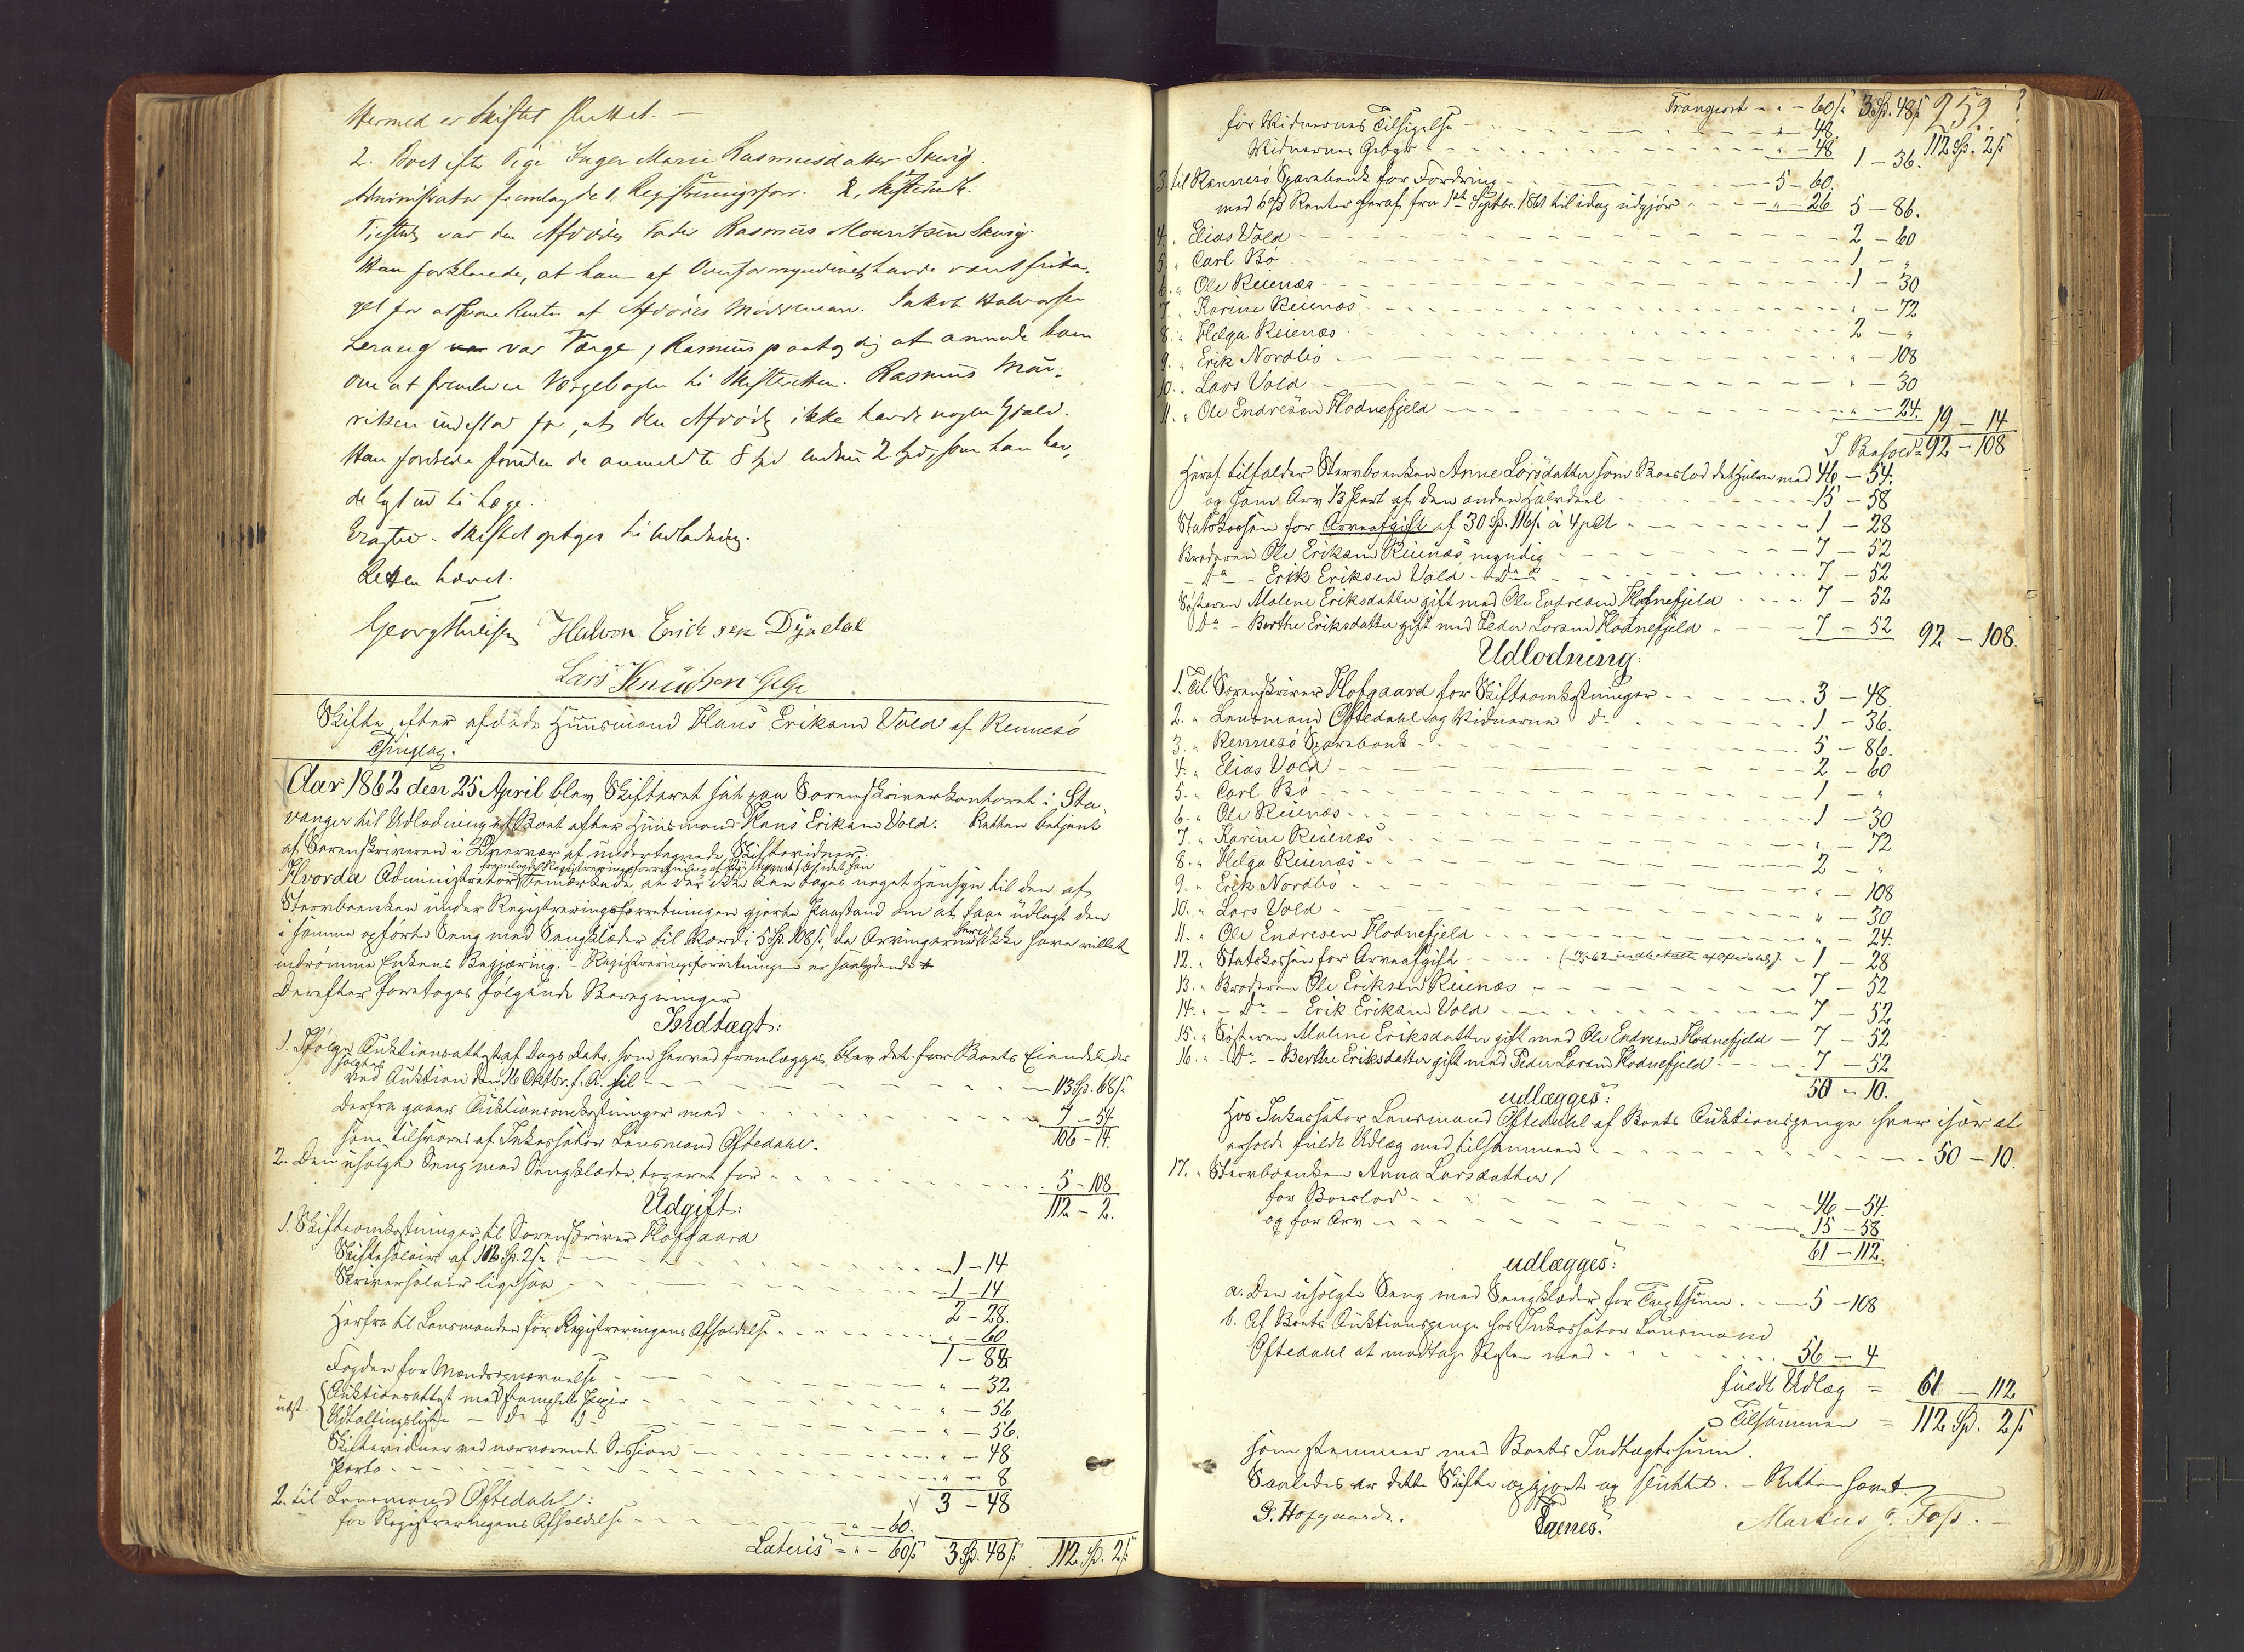 Hermed er Skiftet sluttet. —
2. Boet efter Pige Inger Marie Rasmusdatter Skevig.
Administrator fremlagde 1, Registreringsforr. 2, Skifteindk.
Tilstede var den Afdødes Fader Rasmus Mouritsen Skevig.
Han forklarede, at han af Overformynderiet havde været frita-
get for at svare Renter af Afdødes Mødrenearv. Jakob Halvorsen
var Værge, Rasmus paatog sig at anmode ham
om at fremlevere Værgebogen til Skifteretten. Rasmus Mou-
ritsen indestod for, at den Afdøde ikke havde nogen Gjæld.
Han fordrede foruden de anmeldte 8 Spd endnu 2 Spd, som han hav-
de lagt ud til Læge.
Eragtet. Skiftet optages til Udlodning.
Retten hævet.
Halvor Erichsen Dysedal
Lars Knudsen
Skifte efter afdøde Huusmand Hans Eriksen Vold af Rennesø
Thinglag.
Aar 1862 den 25 April blev Skifteret sat paa Sorenskriverkontoret i Sta-
vanger til Udlodning af Boet efter Huusmand Hans Eriksen Vold. Retten betjent
af Sorenskriveren i Overvær af undertegnede Skiftevidner.
Hvorda Administrator bemærkede, at der ikke kan tages noget Hensyn til den af
Stervboenken under Registreringsforretningen gjorte Paastand om at faae udlagt den
i samme opførte Seng med Sengklæder til Værdi 5 Sp. 108 s, da Arvingerne ikke have villet
indrømme Enkens Begjæring. - Registreringsforretningen er saalydende
Derefter foretoges følgende Beregninger
Indtægt:
1. Ifølge Auktionsattest af Dags Dato, som herved fremlægges, blev det for Boets Eiendele, der
solgtes
ved Auktion den 16 Oktbr. f. A. til - 113 Sp. 68 s.
Derfra gaaer Auktionsomkostninger med - 7 - 54
som tilsvares af Inkassator Lensmand Oftedahl. 106 - 14.
2. Den usolgte Seng med Sengklæder, taxeret for - 5 - 108
112 - 2.
Udgift:
1. Skifteomkostninger til Sorenskriver Hofgaard
Skiftesalair af 112 Sp. 2 s. - 1 - 14
Skriversalair ligesaa - 1 - 14
2 - 28.
Herfra til Lensmanden for Registreringens Afholdelse - " - 60
1 - 88
Fogden for Mændsopnævnelse - " - 32
Auktionsattest med stemplet Papir - " - 56
udst.
Udtallingsliste - Do - " - 56.
Skiftevidner ved nærværende Session - " - 48
Porto - " - 8
3 - 48
2. til Lensmand Oftedahl:
for Registreringens Afholdelse - " - 60.
Lateris = " - 60 s 3 Sp. 48 s. 112 Sp. 2 s.
Transport - " - 60 s. 3 Sp. 48 s. 259.
for Vidnernes Tilsigelse - " - 48. 112 Sp. 2 s
Vidnernes Gebyr - " - 48 1 - 36.
3. til Rennesø Sparebank for Fordring - 5 - 60.
med 6 pCt Renter heraf fra 1ste Septbr. 1861 til idag udgjør - " - 26 5 - 86.
4. " Elias Vold - 2 - 60
5. " Carl Bø - 1 - "
6. " Ole Reienæs - 1 - 30
7. " Karine Reienæs - " - 72
8. " Helga Reienæs - 2 - "
9. " Erik Nordbø - " - 108
10. " Lars Vold - " - 30
11. " Ole Endresen Hodnefjeld - " - 24. 19 - 14
I Behold = 92 - 108
Heraf tilfalder Stervboenken Anne Larsdatter som Boeslod det Halve med 46 - 54.
og som Arv 1/3 Part af den anden Halvdeel - 15 - 58
Statskassen for Arveafgift af 30 Sp. 116 s. á 4 pCt - 1 - 28
Broderen Ole Eriksen Reienæs myndig - 7 - 52
- Do - Erik Eriksen Vold - Do - 7 - 52
Søsteren Malene Eriksdatter gift med Ole Endresen Hodnefjeld - 7 - 52
Do - Berthe Eriksdatter gift med Peder Larsen Hodnefjeld - 7 - 52 92 - 108.
Udlodning:
1. Til Sorenskriver Hofgaard for Skifteomkostninger - 3 - 48.
2. " Lensmand Oftedahl og Vidnerne do - 1 - 36.
3. " Rennesø Sparebank - 5 - 86.
4. " Elias Vold - 2 - 60
5. " Carl Bø - 1 - "
6. " Ole Reienæs - 1 - 30
7. " Karine Reienæs - " - 72
8. " Helga Reienæs - 2 - "
9. " Erik Nordbø - " - 108
10. " Lars Vold - " - 30
11. " Ole Endresen Hodnefjeld - " - 24.
12. " Statskassen for Arveafgift - 1 - 28
13. " Broderen Ole Eriksen Reienæs - 7 - 52
14. " - Do - Erik Eriksen Vold - 7 - 52
15. " Søsteren Malene Eriksdatter gift med Ole Endresen Hodnefjeld - 7 - 52
16. " - Do - Berthe Eriksdatter gift med Peder Larsen Hodnefjeld - 7 - 52
50 - 10.
udlægges:
Hos Inkassator Lensmand Oftedahl af Boets Auktionspenge hver især at
erholde fuldt Udlæg med tilsammen - 50 - 10.
17. " Stervboenken Anna Larsdatter
for Boeslod - 46 - 54.
og for Arv - 15 - 58
61 - 112.
udlægges:
a. Den usolgte Seng med Sengklæder for Taxtsum - 5 - 108
b. Af Boets Auktionspenge hos Inkassator Lensmand
Oftedahl at modtage Resten med - 56 - 4
fuldt Udlæg = 61 - 112
Tilsammen = 112 Sp. 2 s
som stemmer med Boets Indtægtssum.
Saaledes er dette Skifte opgjort og sluttet. - Retten hævet.
G. Hofgaard. Egenes. Markus J. Foss. -